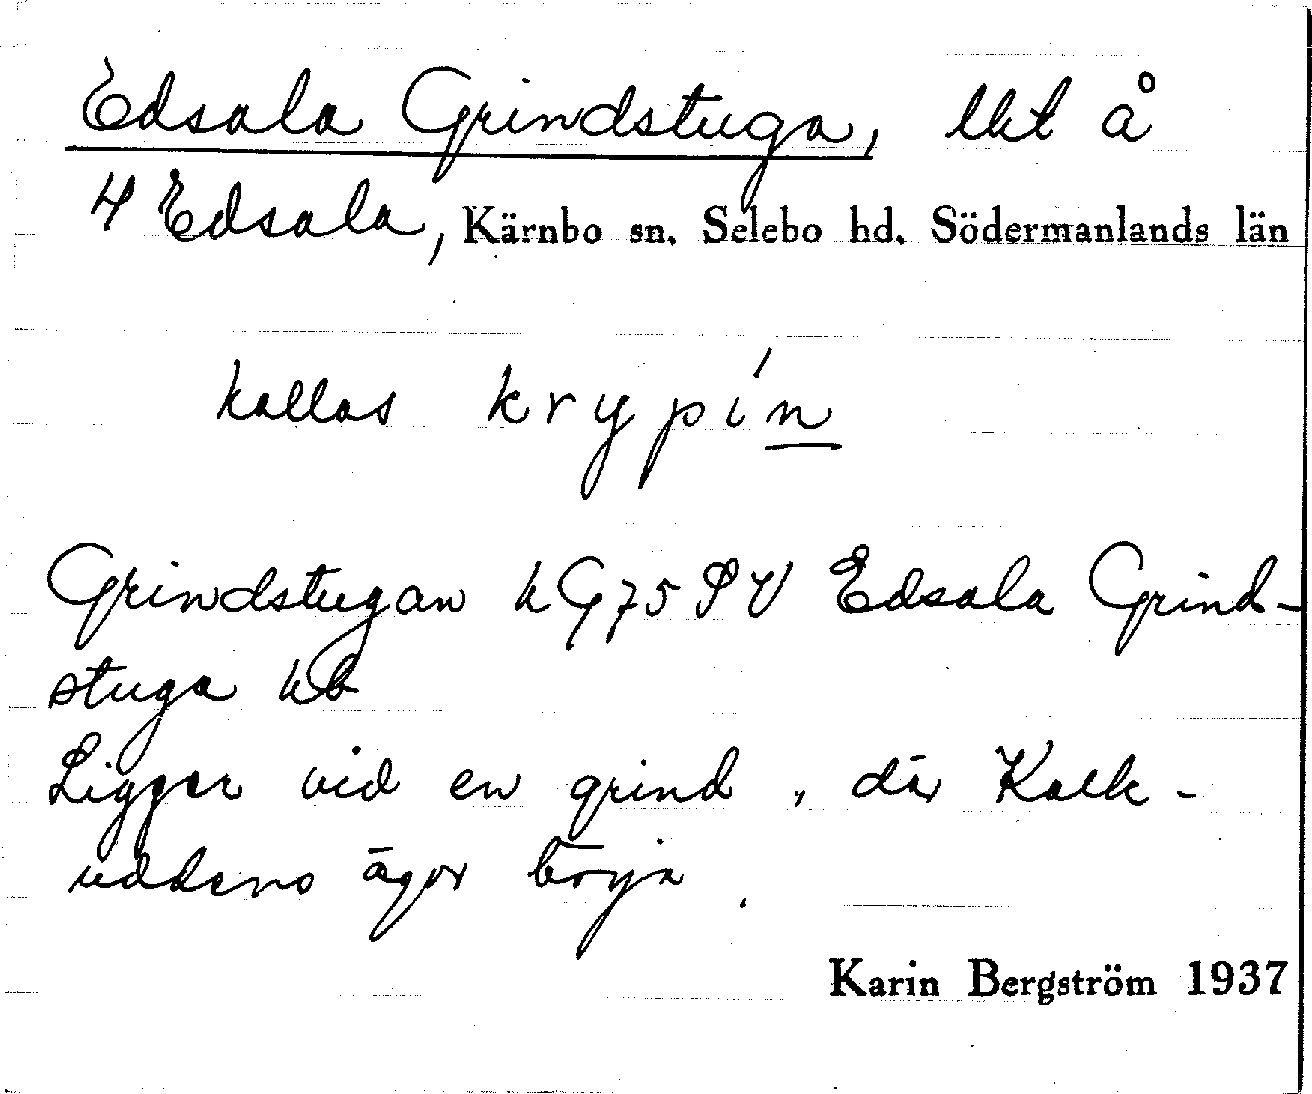 Edsala Grindstuga, lht å
4 Edsala, Kärnbo sn. Selebo hd. Södermanlands län
kallas krypín
Grindstugan hG75SV Edsala Grind-
stuga hb
Ligger vid en grind, där Kalk-
uddens ägor börja.
Karin Bergström 1937